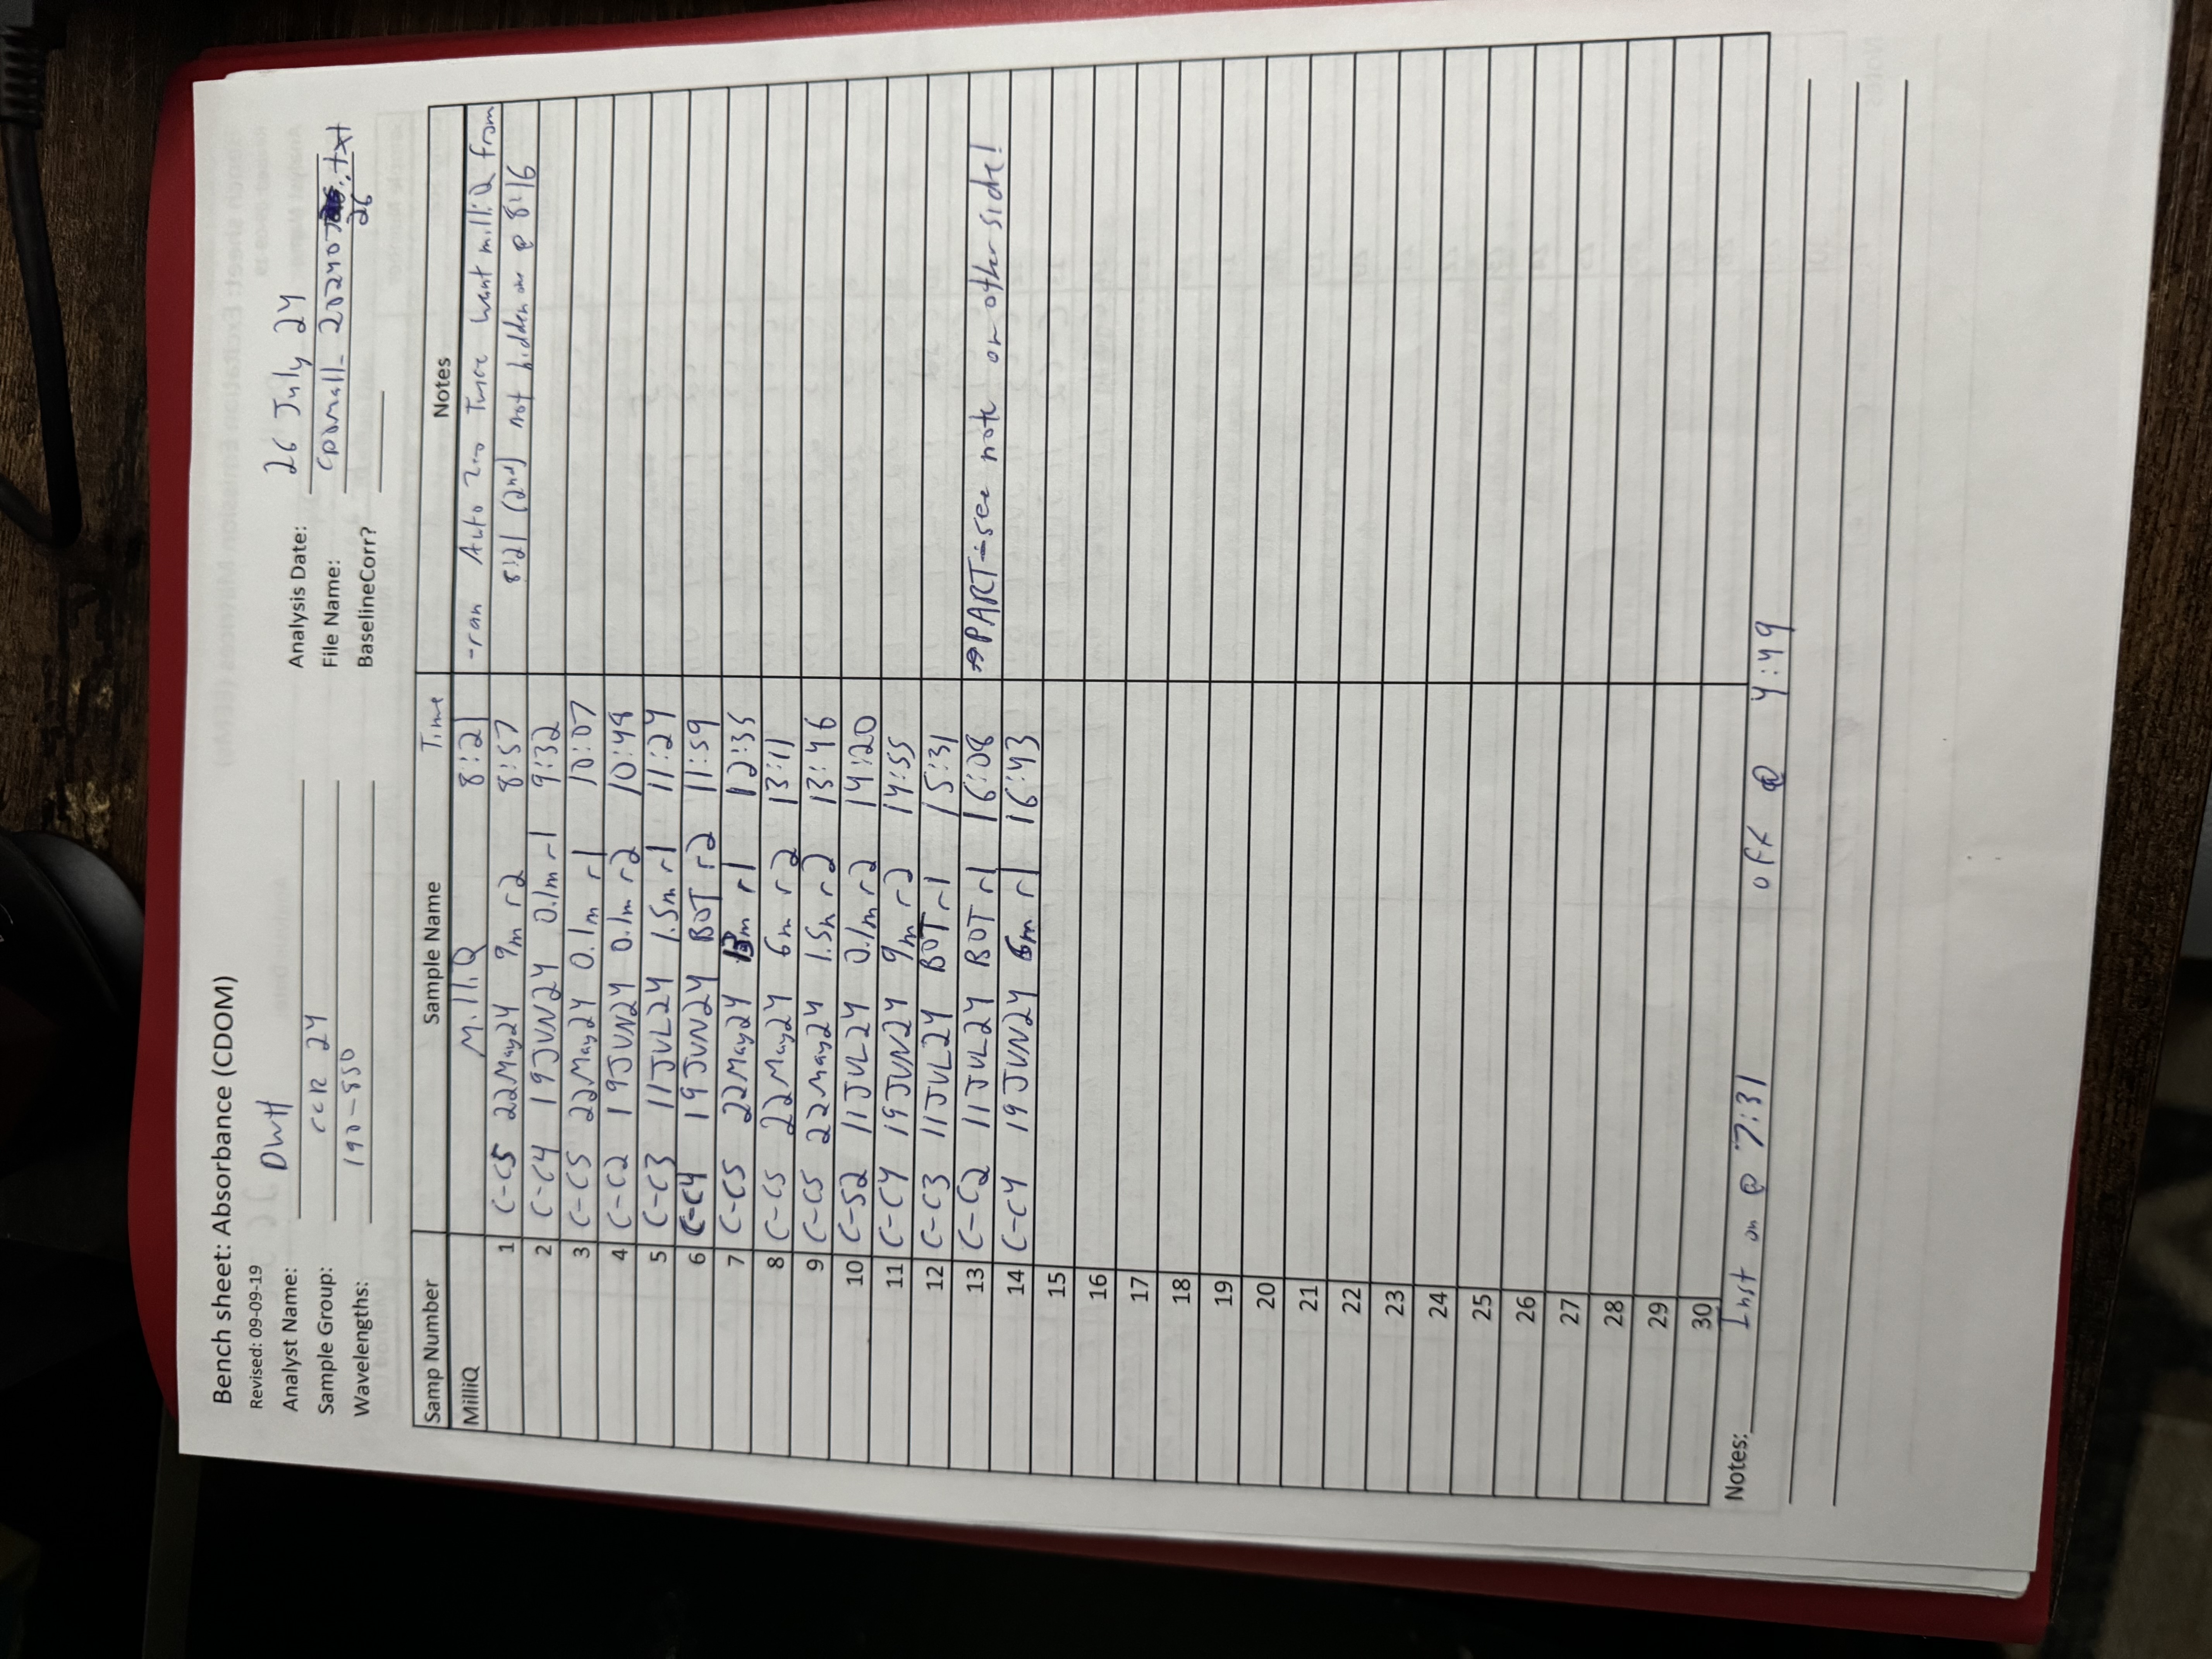 Bench sheet: Absorbance (CDOM)
Revised: 09-09-19
Analyst Name: DWH
Analysis Date: 26 July 24
Sample Group: CCR 24
File Name: CDOMall_202407 .txt
26
Wavelengths: 190-850
BaselineCorr?
Samp Number Sample Name Time Notes
MilliQ MilliQ 8:21 -ran Auto Zero Twice want milliQ from
1 C-C5 22May24 9m r2 8:57 8:21 (2nd) not hidden one @ 8:16
2 C-C4 19JUN24 0.1m r1 9:32
3 C-C5 22May24 0.1m r1 10:07
4 C-C2 19JUN24 0.1m r2 10:48
5 C-C3 11JUL24 1.5m r1 11:24
6 C-C4 19JUN24 BOT r2 11:59
7 C-C5 22May24 13m r1 12:35
8 C-C5 22May24 6m r2 13:11
9 C-C5 22May24 1.5m r2 13:46
10 C-S2 11JUL24 0.1m r2 14:20
11 C-C4 19JUN24 9m r2 14:55
12 C-C3 11JUL24 BOT r1 15:31
13 C-C2 11JUL24 BOT r1 16:08 PART-see note on other side!
14 C-C4 19JUN24 6m r1 16:43
15
16
17
18
19
20
21
22
23
24
25
26
27
28
29
30
Notes: Inst on @ 7:31 off @ 4:49